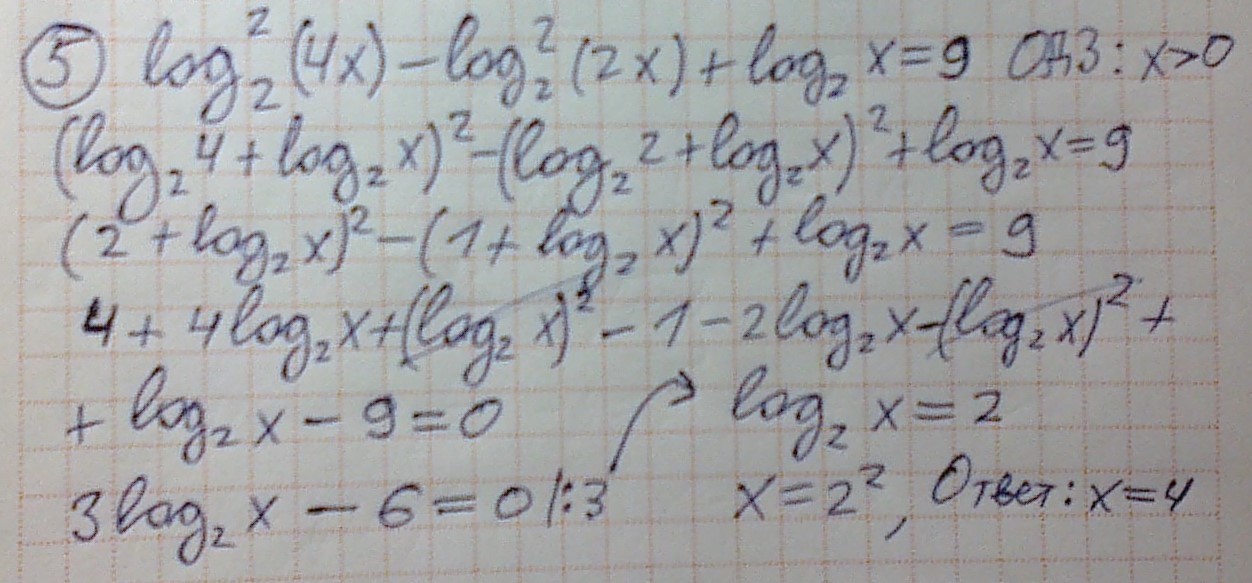 ⑤ log₂²(4x) − log₂²(2x) + log₂ x = 9 ОДЗ: x>0
(log₂ 4 + log₂ x)² − (log₂ 2 + log₂ x)² + log₂ x = 9
(2 + log₂ x)² − (1 + log₂ x)² + log₂ x = 9
4 + 4 log₂ x + (log₂ x)² − 1 − 2 log₂ x − (log₂ x)² +
+ log₂ x − 9 = 0 log₂ x = 2
3 log₂ x − 6 = 0 |:3 x = 2², Ответ: x = 4